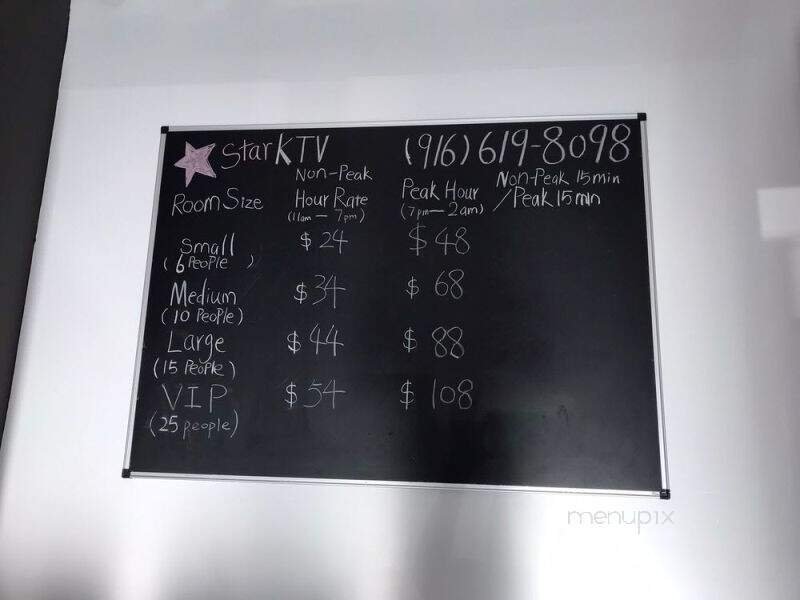 Star KTV (916) 619-8098
Room Size Non-Peak Hour Rate (11am - 7pm) Peak Hour (7pm - 2am) Non-Peak 15min / Peak 15min
Small $24 $48
(6 People)
Medium $34 $68
(10 People)
Large $44 $88
(15 People)
VIP $54 $108
(25 people)
menupix